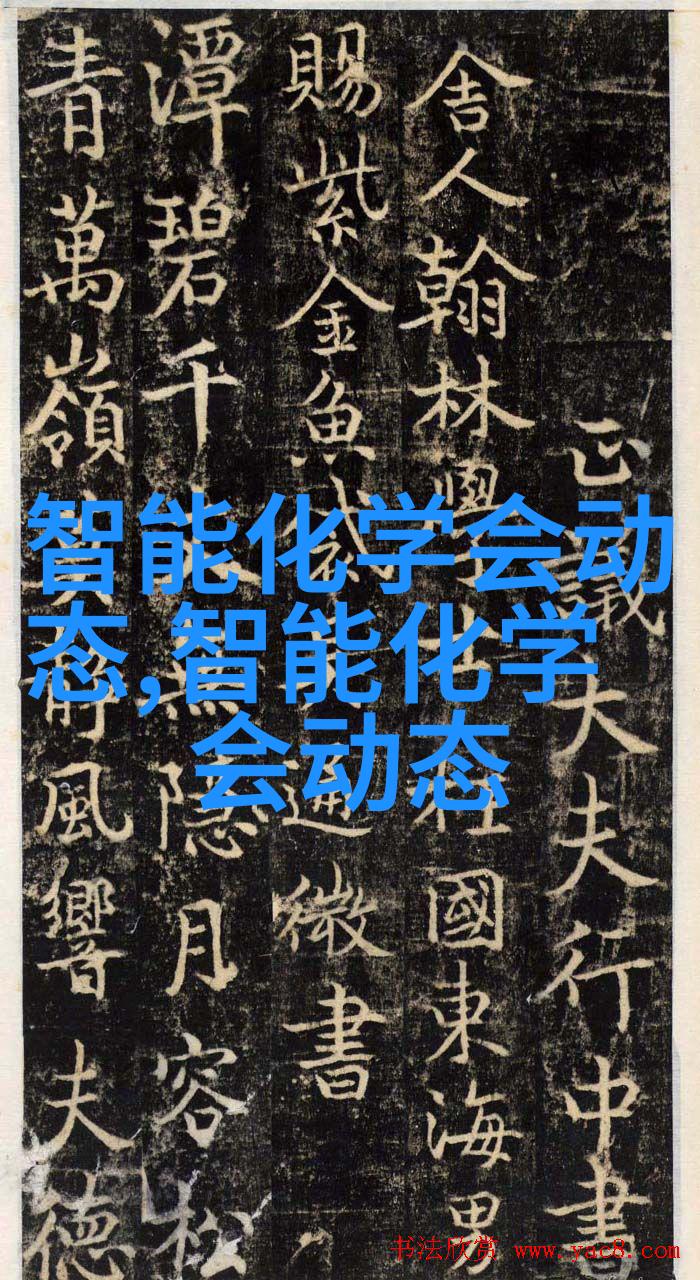 正議大夫行中書
舍人翰林學士柱國東海男
賜紫金魚袋徐通微書
潭碧千丈無隱月容松
青萬嶺解風響夫德
智能化学会动
态,智能化学
会动态
书法欣赏 www.yac8.com